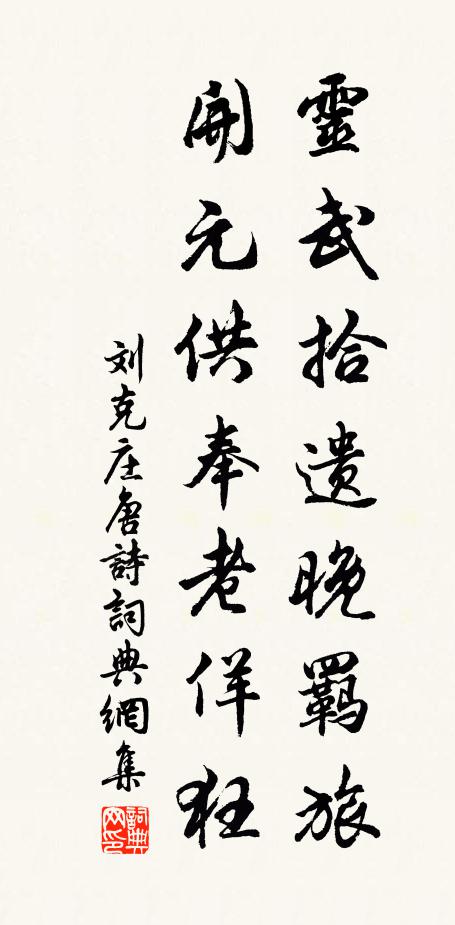 靈武拾遺晚羈旅
開元供奉老佯狂
刘克庄唐詩詞典網集
詞典网印